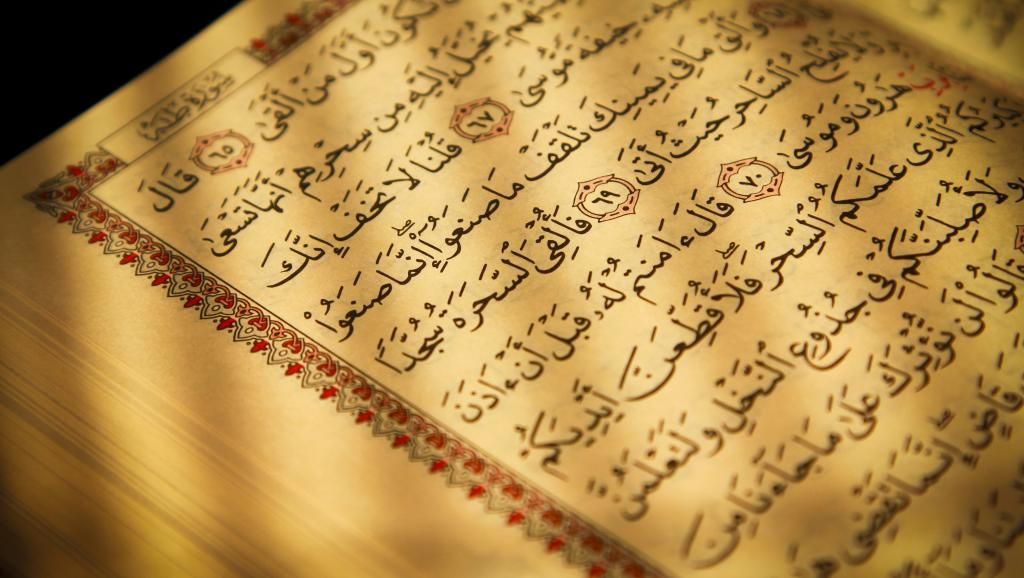 سُورَةُ طه
نَّكُونَ أَوَّلَ مَنْ أَلْقَىٰ ٦٥ قَالَ
يُخَيَّلُ إِلَيْهِ مِن سِحْرِهِمْ أَنَّهَا تَسْعَىٰ
خِيفَةً مُّوسَىٰ ٦٧ قُلْنَا لَا تَخَفْ إِنَّكَ
وَأَلْقِ مَا فِي يَمِينِكَ تَلْقَفْ مَا صَنَعُوٓا۟ ۖ إِنَّمَا صَنَعُوا۟
وَلَا يُفْلِحُ ٱلسَّاحِرُ حَيْثُ أَتَىٰ ٦٩ فَأُلْقِيَ ٱلسَّحَرَةُ سُجَّدًا
هَٰرُونَ وَمُوسَىٰ ٧٠ قَالَ ءَامَنتُمْ لَهُۥ قَبْلَ أَنْ ءَاذَنَ
ٱلَّذِي عَلَّمَكُمُ ٱلسِّحْرَ ۖ فَلَأُقَطِّعَنَّ أَيْدِيَكُمْ
وَلَأُصَلِّبَنَّكُمْ فِي جُذُوعِ ٱلنَّخْلِ وَلَتَعْلَمُنَّ
قَالُوا۟ لَن نُّؤْثِرَكَ عَلَىٰ مَا جَآءَنَا مِنَ
قَاضٍ ۖ إِنَّمَا تَقْضِي